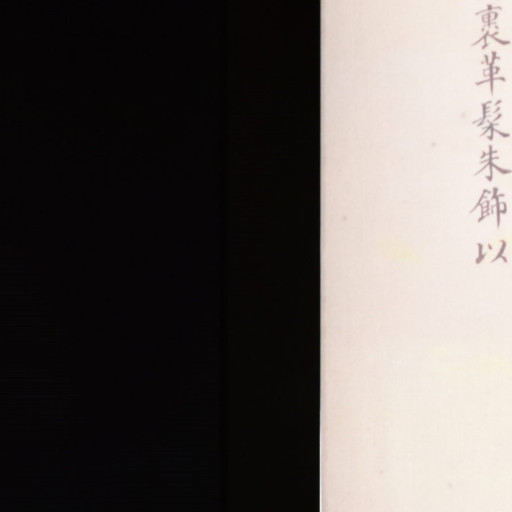 裹革髹朱飾以